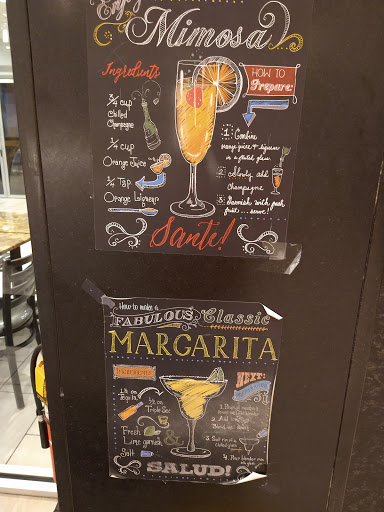 Enjoy
Mimosa
Ingredients
3/4 cup
Chilled
Champagne
1/4 cup
Orange Juice
1/2 Tsp
Orange Liqueur
HOW TO
Prepare:
1. Combine
orange juice & liqueur
in a fluted glass.
2. Slowly add
champagne
3. Garnish with fresh
fruit ... serve!
Santé!
How to make a
FABULOUS Classic
MARGARITA
INGREDIENTS
Tequila
Triple Sec
Fresh
Lime garnish &
Salt
NEXT:
1.
2. Add
3.
4. Pour blender mix
SALUD!